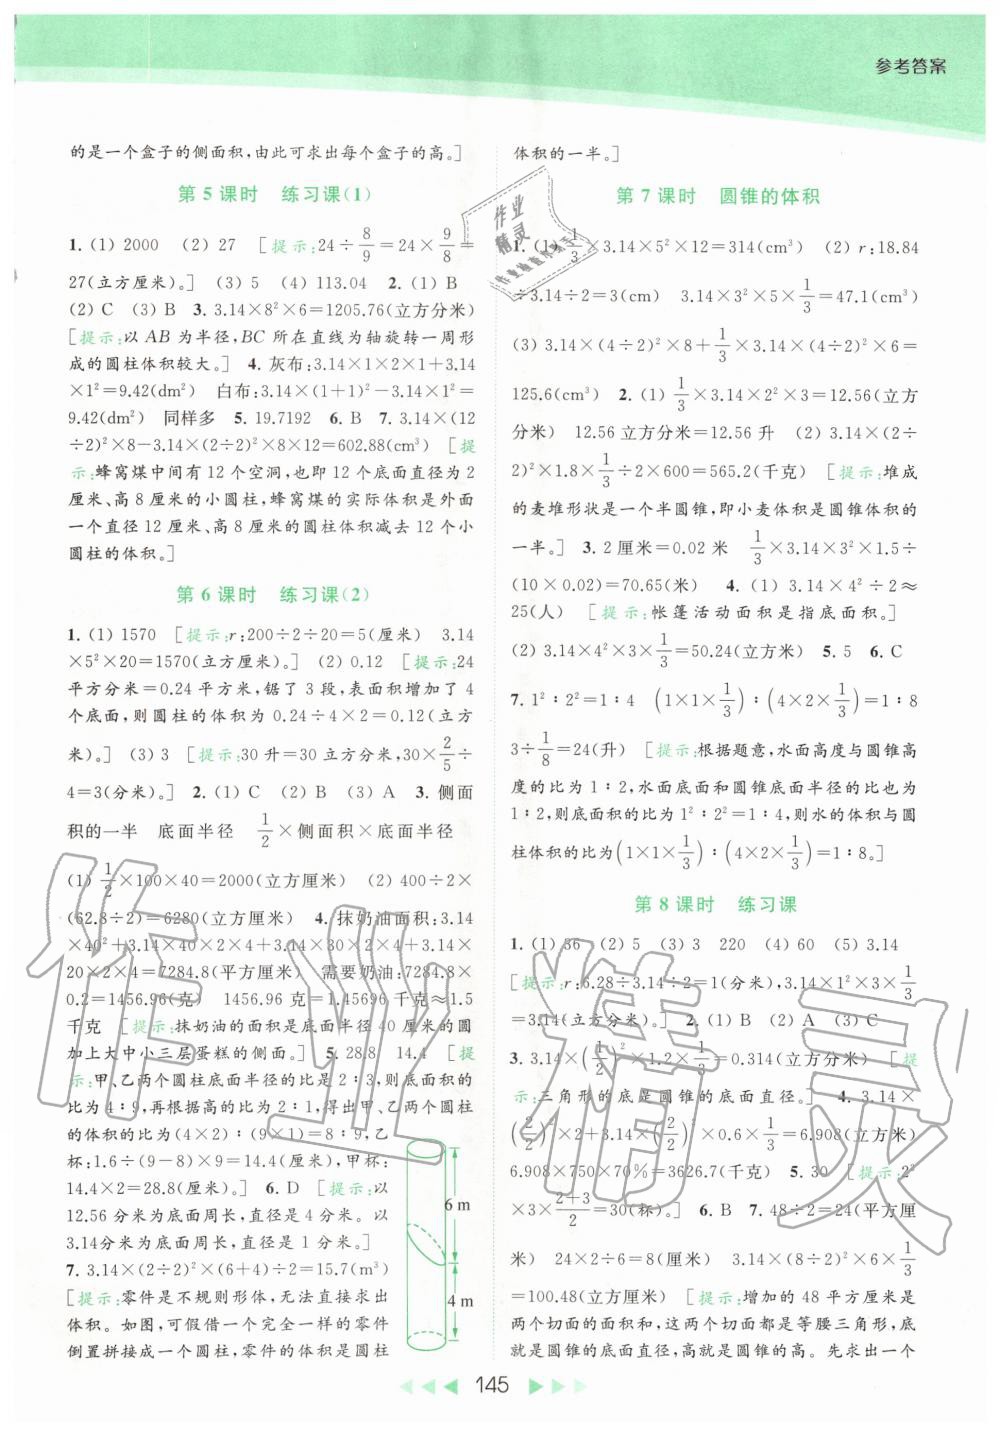 参考答案
的是一个盒子的侧面积,由此可求出每个盒子的高。]
第5课时 练习课(1)
1. (1) 2000 (2) 27 [提示:24÷8/9=24×9/8=
27(立方厘米)。] (3) 5 (4) 113.04 2. (1) B
(2) C (3) B 3. 3.14×8²×6=1205.76(立方分米)
[提示:以AB为半径,BC所在直线为轴旋转一周形
成的圆柱体积较大。] 4. 灰布:3.14×1×2×1+3.14
×1²=9.42(dm²) 白布:3.14×(1+1)²-3.14×1²=
9.42(dm²) 同样多 5. 19.7192 6. B 7. 3.14×(12
÷2)²×8-3.14×(2÷2)²×8×12=602.88(cm³) [提
示:蜂窝煤中间有12个空洞,也即12个底面直径为2
厘米、高8厘米的小圆柱,蜂窝煤的实际体积是外面
一个直径12厘米、高8厘米的圆柱体积减去12个小
圆柱的体积。]
第6课时 练习课(2)
1. (1) 1570 [提示:r:200÷2÷20=5(厘米) 3.14
×5²×20=1570(立方厘米)。] (2) 0.12 [提示:24
平方分米=0.24平方米,锯了3段,表面积增加了4
个底面,则圆柱的体积为0.24÷4×2=0.12(立方
米)。] (3) 3 [提示:30升=30立方分米,30×2/5÷
4=3(分米)。] 2. (1) C (2) B (3) A 3. 侧面
积的一半 底面半径 1/2×侧面积×底面半径
(1) 1/2×100×40=2000(立方厘米) (2) 400÷2×
(62.8÷2)=6280(立方厘米) 4. 抹奶油面积:3.14
×40²+3.14×40×2×4+3.14×30×2×4+3.14×
20×2×4=7284.8(平方厘米) 需要奶油:7284.8×
0.2=1456.96(克) 1456.96克=1.45696千克≈1.5
千克 [提示:抹奶油的面积是底面半径40厘米的圆
加上大中小三层蛋糕的侧面。] 5. 28.8 14.4 [提
示:甲、乙两个圆柱底面半径的比是2∶3,则底面积的
比为4∶9,再根据高的比为2∶1,得出甲、乙两个圆柱
的体积的比为(4×2)∶(9×1)=8∶9,乙
杯:1.6÷(9-8)×9=14.4(厘米),甲杯:
14.4×2=28.8(厘米)。] 6. D [提示:以
12.56分米为底面周长,直径是4分米。以
3.14分米为底面周长,直径是1分米。]
7. 3.14×(2÷2)²×(6+4)÷2=15.7(m³)
[提示:零件是不规则形体,无法直接求出
体积。如图,可假借一个完全一样的零件
倒置拼接成一个圆柱,零件的体积是圆柱
6 m
4 m
体积的一半。]
第7课时 圆锥的体积
1. (1) 1/3×3.14×5²×12=314(cm³) (2) r:18.84
÷3.14÷2=3(cm) 3.14×3²×5×1/3=47.1(cm³)
(3) 3.14×(4÷2)²×8+1/3×3.14×(4÷2)²×6=
125.6(cm³) 2. (1) 1/3×3.14×2²×3=12.56(立方
分米) 12.56立方分米=12.56升 (2) 3.14×(2÷
2)²×1.8×1/3÷2×600=565.2(千克) [提示:堆成
的麦堆形状是一个半圆锥,即小麦体积是圆锥体积的
一半。] 3. 2厘米=0.02米 1/3×3.14×3²×1.5÷
(10×0.02)=70.65(米) 4. (1) 3.14×4²÷2≈
25(人) [提示:帐篷活动面积是指底面积。]
(2) 3.14×4²×3×1/3=50.24(立方米) 5. 5 6. C
7. 1²∶2²=1∶4 (1×1×1/3)∶(4×2×1/3)=1∶8
3÷1/8=24(升) [提示:根据题意,水面高度与圆锥高
度的比为1∶2,水面底面和圆锥底面半径的比也为
1∶2,则底面积的比为1²∶2²=1∶4,则水的体积与圆
柱体积的比为(1×1×1/3)∶(4×2×1/3)=1∶8。]
第8课时 练习课
1. (1) 36 (2) 5 (3) 3 220 (4) 60 (5) 3.14
[提示:r:6.28÷3.14÷2=1(分米),3.14×1²×3×1/3
=3.14(立方分米)。] 2. (1) B (2) A (3) C
3. 3.14×(1/2)²×1.2×1/3=0.314(立方分米) [提
示:三角形的底是圆锥的底面直径。] 4. 3.14×
(2/2)²×2+3.14×(2/2)²×0.6×1/3=6.908(立方米)
6.908×750×70%=3626.7(千克) 5. 30 [提示:2²
×3×(2+3)/2=30(杯)。] 6. B 7. 48÷2=24(平方厘
米) 24×2÷6=8(厘米) 3.14×(8÷2)²×6×1/3
=100.48(立方厘米) [提示:增加的48平方厘米是
两个切面的面积和,两个切面都是等腰三角形,底
就是圆锥的底面直径,高就是圆锥的高。先求出一个
145
作业精灵